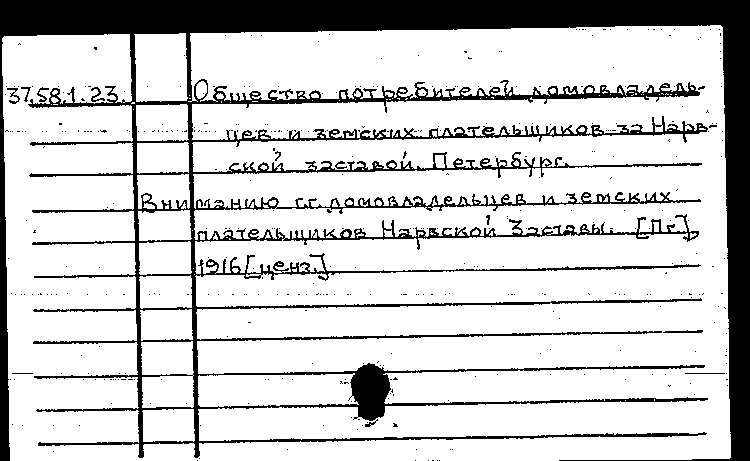 37.58.1.23. Общество потребителей домовладель-
цев и земских плательщиков за Нарв-
ской заставой. Петербург.
Вниманию г.г. домовладельцев и земских
плательщиков Нарвской Заставы. [Пг.],
1916 [ценз.]